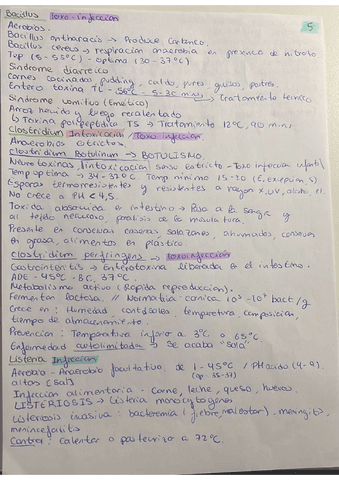 Bacillus Toxo-infección
5
Aerobios.
Bacillus anthracis → Produce Carbunco.
Bacillus cereus → respiración anaerobia en presencia de nitrato
Tup (5-55ºC) - óptima (30-37ºC)
Síndrome diarreico
Carnes cocinadas, pudding, caldo, pures, guisos, postres.
Entero toxina TL - 56ºC - 5-30 min, tratamiento térmico
Síndrome vomitivo (Emético)
Arroz hervido y luego recalentado
↳ Toxina polipeptídica TS → Tratamiento 12ºC, 90 min
Clostridium Intoxicación / Toxo infección
Anaerobios estrictos.
Clostridium Botulinum → BOTULISMO.
Neurotoxinas, (intoxicación) sensu estricto - Toxo infección infantil
Temp optima → 34-35ºC Temp mínimo 15-30 (E. excep. 5)
Esporas termorresistentes y resistentes a rayos X, UV, alcohol et.
No crece a PH < 4,5.
Toxina absorvida en intestino → Pasa a la sangre y
al tejido nervioso, paralisis de la musculatura.
Presente en conservas caseras, salazones, ahumados, conservas
en grasa, alimentos en plástico
Clostridium perfringens → toxoinfección
Gastroenteritis → Enterotoxina liberada en el intestino.
ADE - 45ºC - BC, 37ºC.
Metabolismo activo (Rápida reproducción).
Fermentan lactosa. // Normativa carnica 10⁵-10⁸ bact/g
Crece en: Humedad, cantidades, temperatura, composición,
tiempo de almacenamiento.
Prevención: Temperatura inferior a 3ºC o 65ºC.
Enfermedad autolimitada → Se acaba "sola"
Listeria Infección
Aerobio - Anaerobio facultativo, de 1-45ºC / PH ácido (4-9).
altas [sal] (op. 35-37)
Infección alimentaria - Carne, leche, queso, huevos.
LISTERIOSIS → Listeria monocytogenes
Listeriosis invasiva: bacteremia (fiebre, malestar), meningitis,
meningoencefalitis
Control: Calentar o pasteurizar a 72ºC.